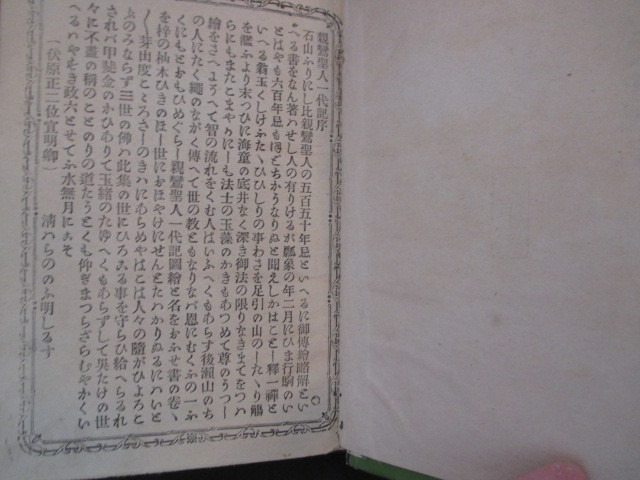 親鸞聖人一代記序
石山ふりにし比親鸞聖人の五百五十年忌といへるに御傳繪略解とい
へる書をなん著はせし人の有りけるが瓢象の年二月にひま行駒のい
とはやも六百年忌もほどちかうなりぬと聞えしかはことし釋一禪と
いへる翁玉くしけふたゝひひしりの事わさを足引の山のしたゝり觴
を濫ふより末つひに海童の底井なく深き御法の限りなきまてをつは
らにもまたこまやかにーも法士の玉藻のかきもあつめて尊のうつし
繪をさへようへて智の流れをくむ人はいふへくもあらす後瀬山のち
の人にたく繩のながく傳へて世の教ともなりなバ恩にむくふの一ふ
くにもとおもひめぐらし親鸞聖人一代記圖繪と名をおふせ書の卷ゝ
を梓の杣木ひきのほし世におほやけにせんとたハかりぬるにハいと
し芽出度こゝろさしのきハにあらめやはこは人々の隨がひよろこ
ふのみならず三世の佛ハ此集の世にひろまる事を守らひ給へらるれ
されバ甲斐金のかひありて玉緒のたゆへくもあらずして呉たけの世
々に不盡の稱のことのりの道たうとくも仰ぎまつらざらむやかくい
へるハやすき政六とせてふ水無月にこそ
(伏原正二位宣明卿)　清ハらののふ明しるす